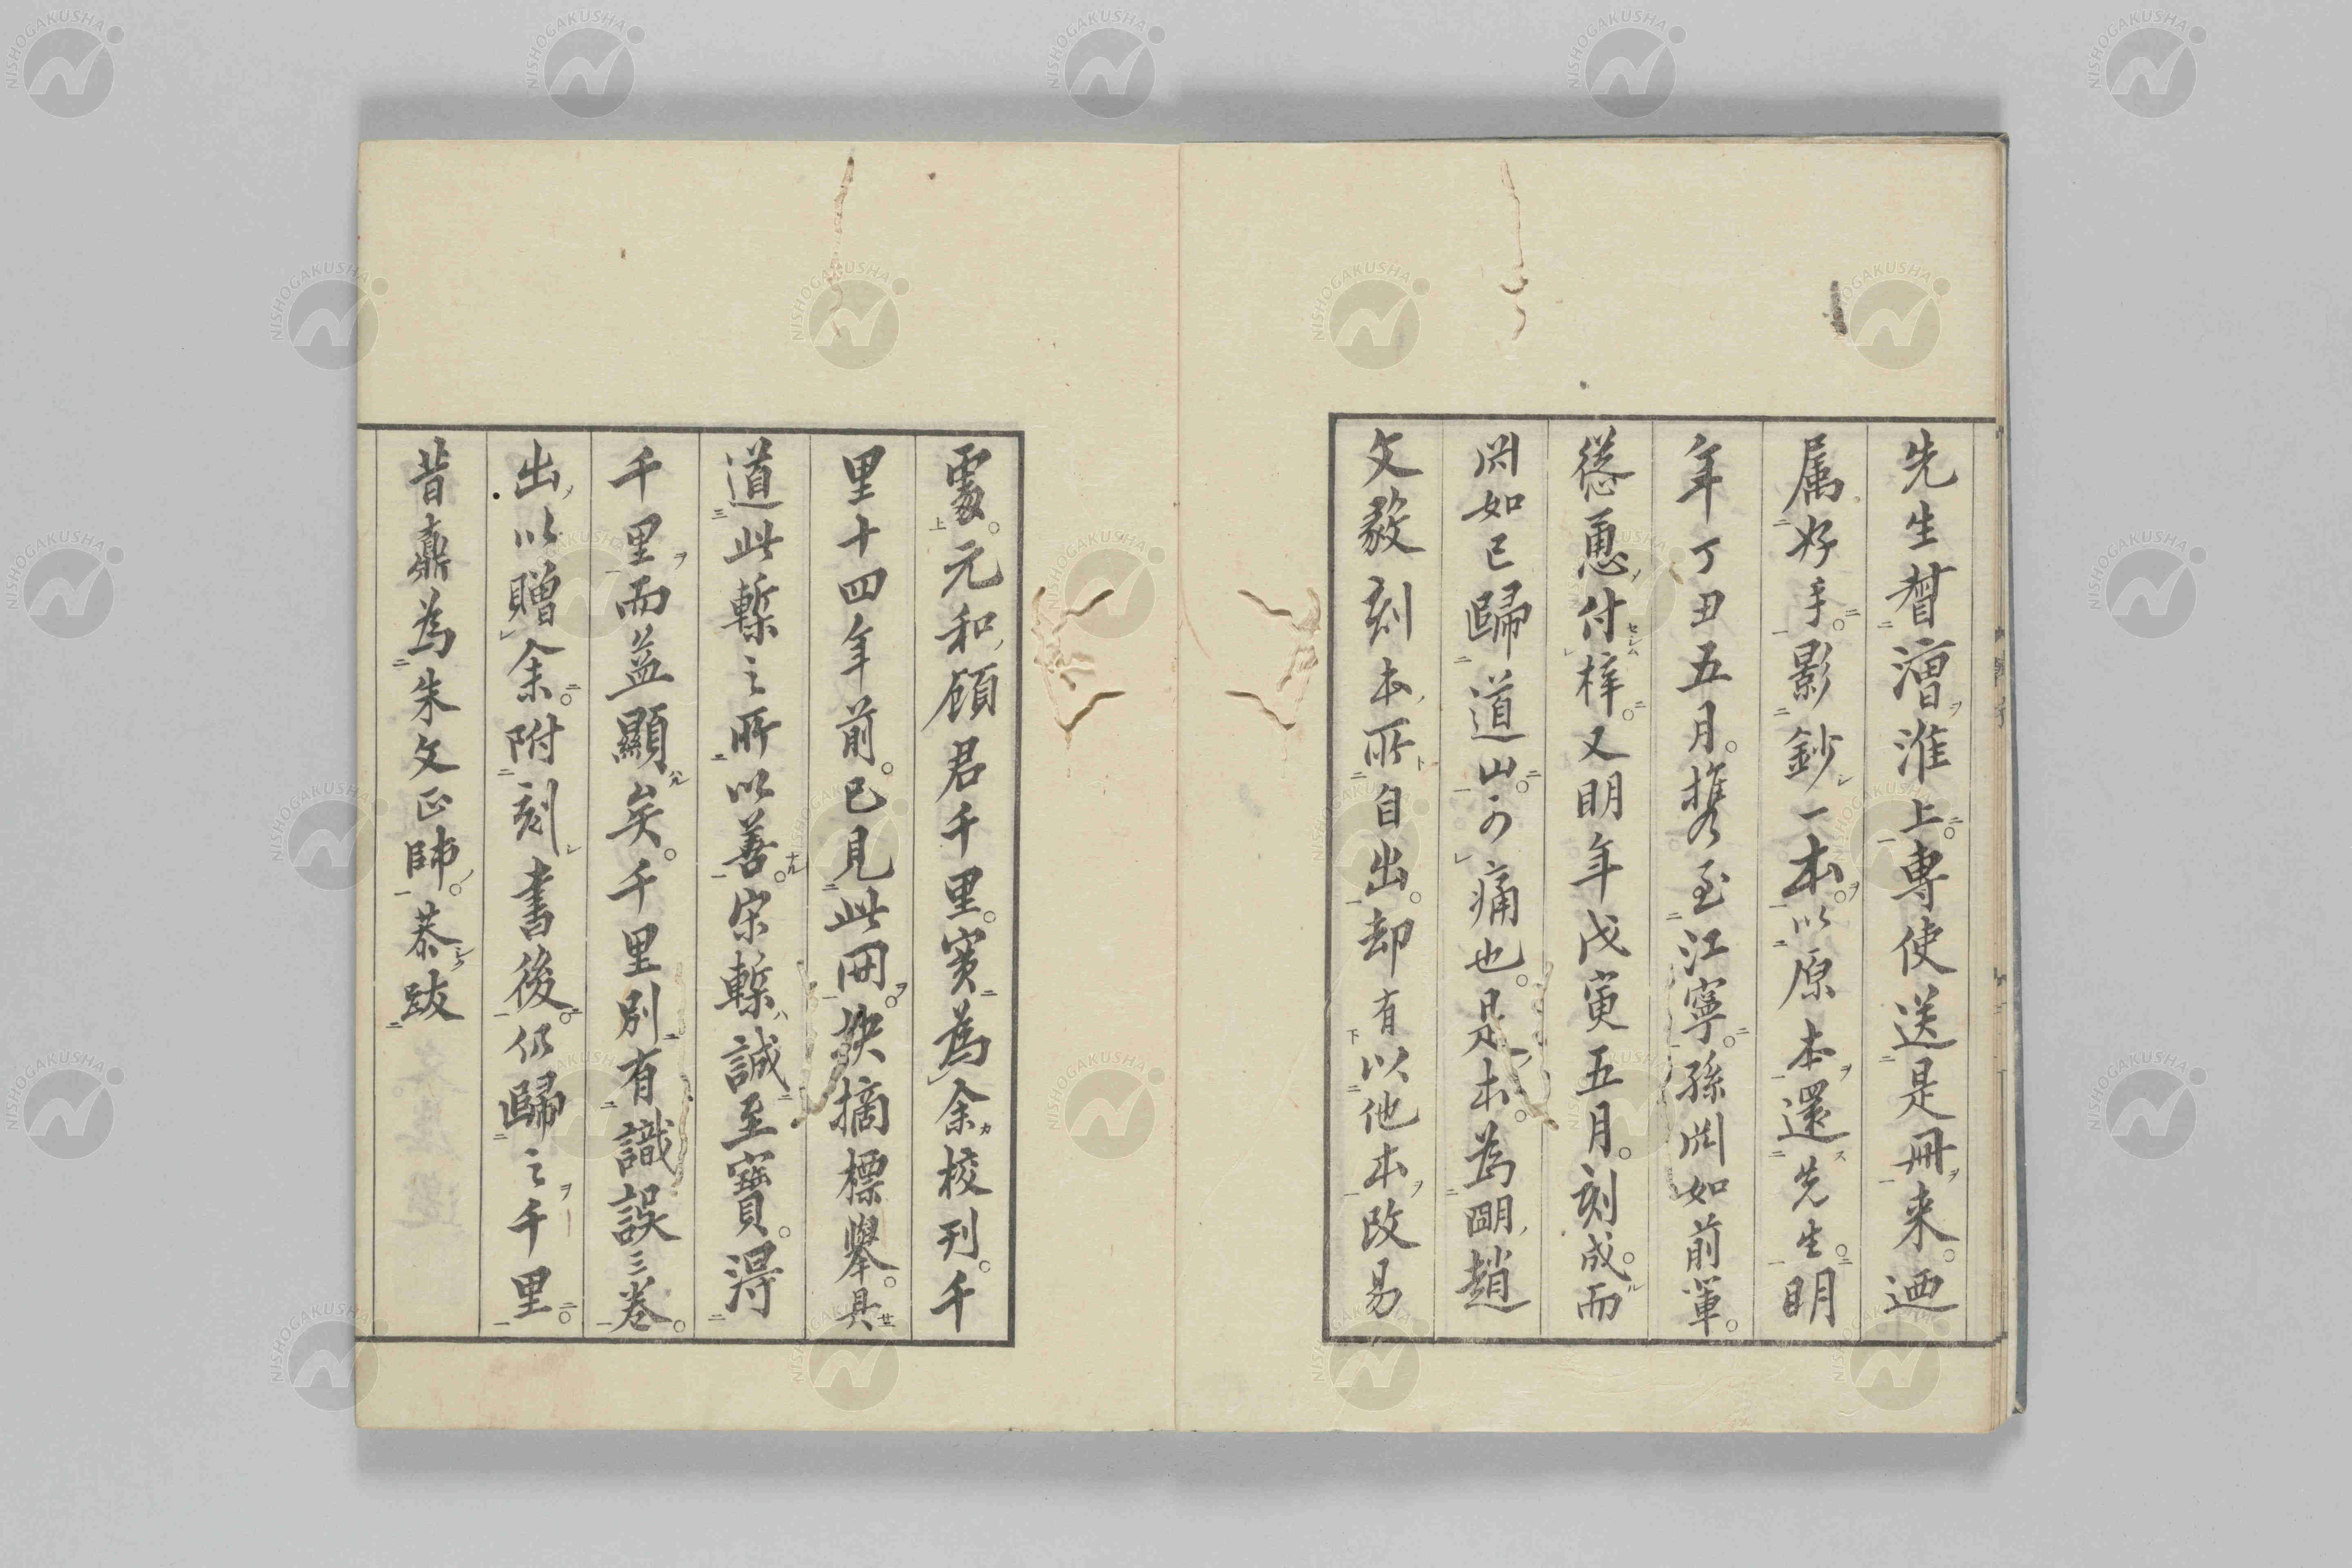 先生督漕淮上專使送是冊来迺
属好手影鈔一本以原本還先生明
年丁丑五月携至江寧孫渊如前軰
慫恿付梓又明年戊寅五月刻成而
渊如已歸道山可痛也是本為明趙
文毅刻本所自出却有以他本改易
處元和顧君千里實為余校刊千
里十四年前已見此冊抉摘標舉具
道此槧之所以善宋槧誠至寶得
千里而益顯矣千里別有識誤三卷
出以贈余附刻書後仍歸之千里
昔鼒為朱文正師恭跋
NISHOGAKUSHA